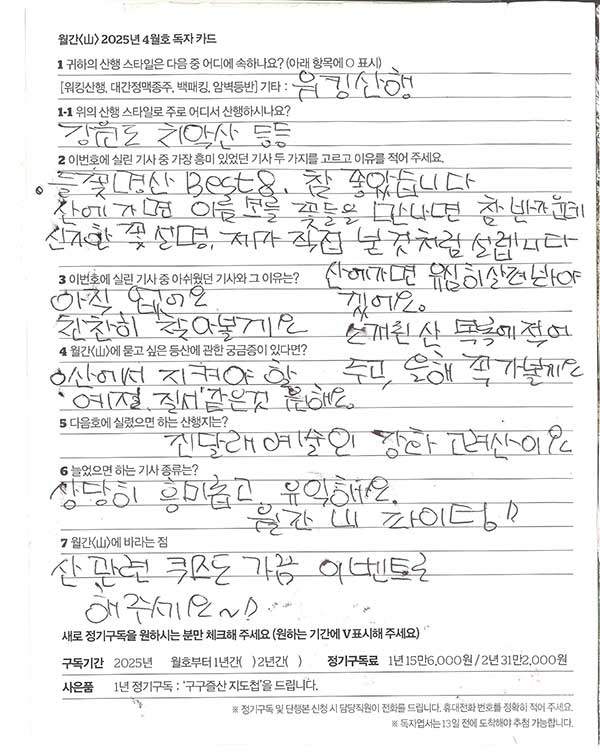 월간〈山〉 2025년 4월호 독자 카드
1 귀하의 산행 스타일은 다음 중 어디에 속하나요? (아래 항목에 ○ 표시)
[워킹산행, 대간정맥종주, 백패킹, 암벽등반] 기타 : 워킹산행
1-1 위의 산행 스타일로 주로 어디서 산행하시나요?
강원도 치악산 등등
2 이번호에 실린 기사 중 가장 흥미 있었던 기사 두 가지를 고르고 이유를 적어 주세요.
들꽃명산 Best 8. 참 좋았습니다
산에 가면 이름 모를 꽃들을 만나면 참 반가운데
신기한 꽃 설명, 제가 직접 본 것처럼 설렙니다
산에가면 유심히 살펴봐야
3 이번호에 실린 기사 중 아쉬웠던 기사와 그 이유는?
아직 없어요 겠어요.
찬찬히 찾아볼게요 산 목록에 적어
4 월간〈山〉에 묻고 싶은 등산에 관한 궁금증이 있다면?
산에서 지켜야 할 두고, 올해 꼭 가볼게요
예절, 질서 같은것 궁금해요.
5 다음호에 실렸으면 하는 산행지는?
진달래 예술인 강화 고려산이요
6 늘었으면 하는 기사 종류는?
상당히 흥미롭고 유익해요.
월간 山 파이팅!!
7 월간〈山〉에 바라는 점
산 관련 퀴즈도 가끔 이벤트로
해주세요~!!
새로 정기구독을 원하시는 분만 체크해 주세요 (원하는 기간에 V표시해 주세요)
구독기간 2025년 월호부터 1년간( ) 2년간( ) 정기구독료 1년 15만6,000원 / 2년 31만2,000원
사은품 1년 정기구독 : '구구즐산 지도첩'을 드립니다.
※ 정기구독 및 단행본 신청 시 담당직원이 전화를 드립니다. 휴대전화 번호를 정확히 적어 주세요.
※ 독자엽서는 13일 전에 도착해야 추첨 가능합니다.